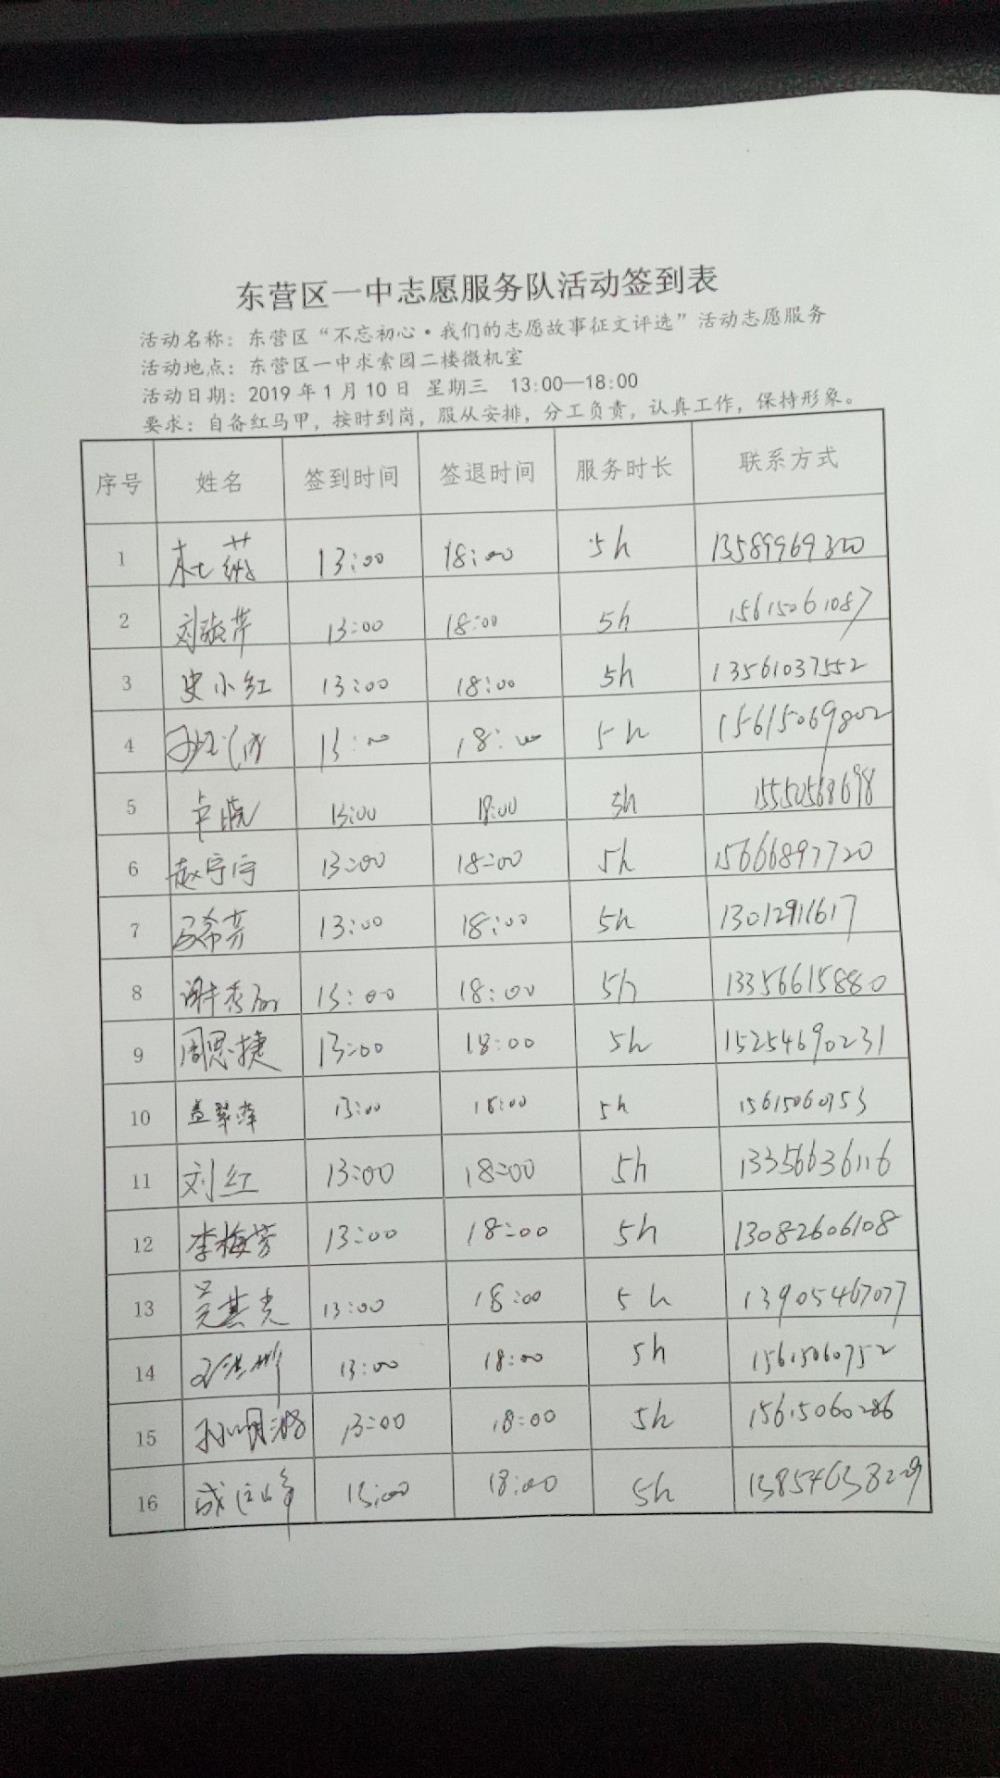 东营区一中志愿服务队活动签到表
活动名称：东营区“不忘初心·我们的志愿故事征文评选”活动志愿服务
活动地点：东营区一中求索园二楼微机室
活动日期：2019年1月10日 星期三 13:00—18:00
要求：自备红马甲，按时到岗，服从安排，分工负责，认真工作，保持形象。
序号 姓名 签到时间 签退时间 服务时长 联系方式
1 13:00 18:00 5h 13589969320
2 13:00 18:00 5h 15615061087
3 史小红 13:00 18:00 5h 13561037552
4 13:00 18:00 5h 15615069802
5 卢晓 13:00 18:00 5h 15550568698
6 赵宁宁 13:00 18:00 5h 15666897720
7 马希芳 13:00 18:00 5h 13012911617
8 13:00 18:00 5h 13356615880
9 周思捷 13:00 18:00 5h 15254690231
10 孟翠萍 13:00 18:00 5h 15615060953
11 刘红 13:00 18:00 5h 13356636116
12 李梅芳 13:00 18:00 5h 13082606108
13 吴其光 13:00 18:00 5h 13905467077
14 13:00 18:00 5h 15615060752
15 13:00 18:00 5h 15615060286
16 13:00 18:00 5h